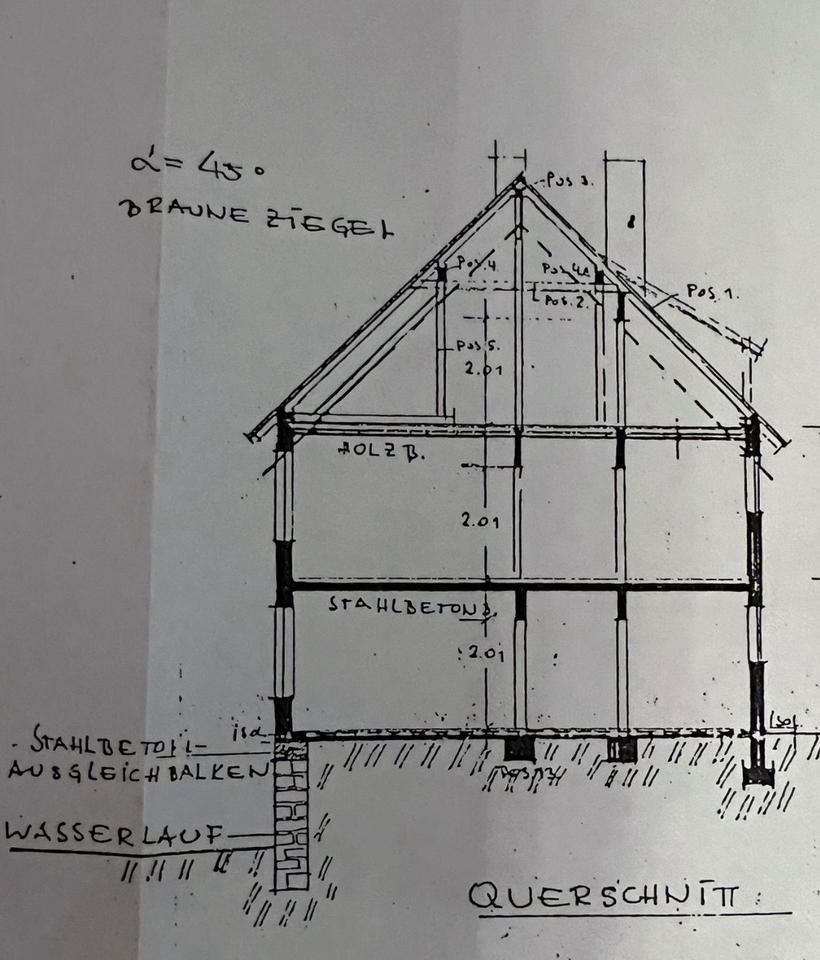 α = 45°
BRAUNE ZIEGEL
Pos 3.
Pos. 4
Pos. 4a
Pos. 1.
Pos. 2.
Pos 5.
2.01
HOLZ B.
2.01
STAHLBETOND.
2.01
isol.
Isol.
STAHLBETON-
AUSGLEICHBALKEN
WASSERLAUF
QUERSCHNITT